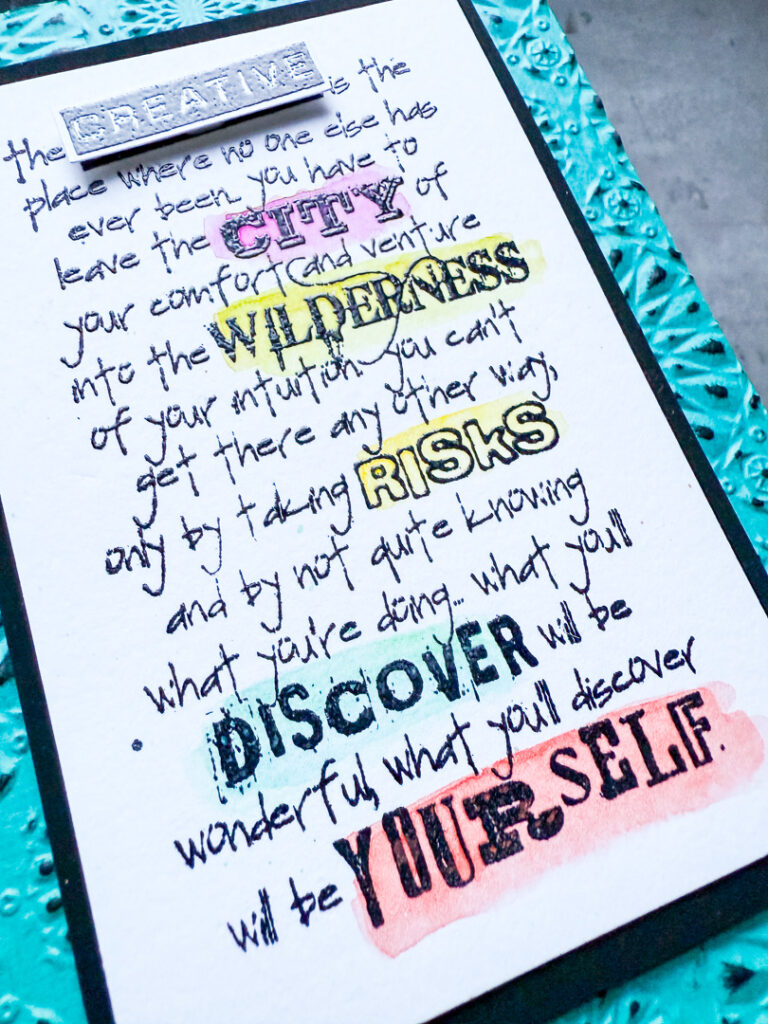 the CREATIVE is the
place where no one else has
ever been. you have to
leave the CITY of
your comfort and venture
into the WILDERNESS
of your intuition. you can't
get there any other way,
only by taking RISKS
and by not quite knowing
what you're doing... what you'll
DISCOVER will be
wonderful, what you'll discover
will be YOURSELF.